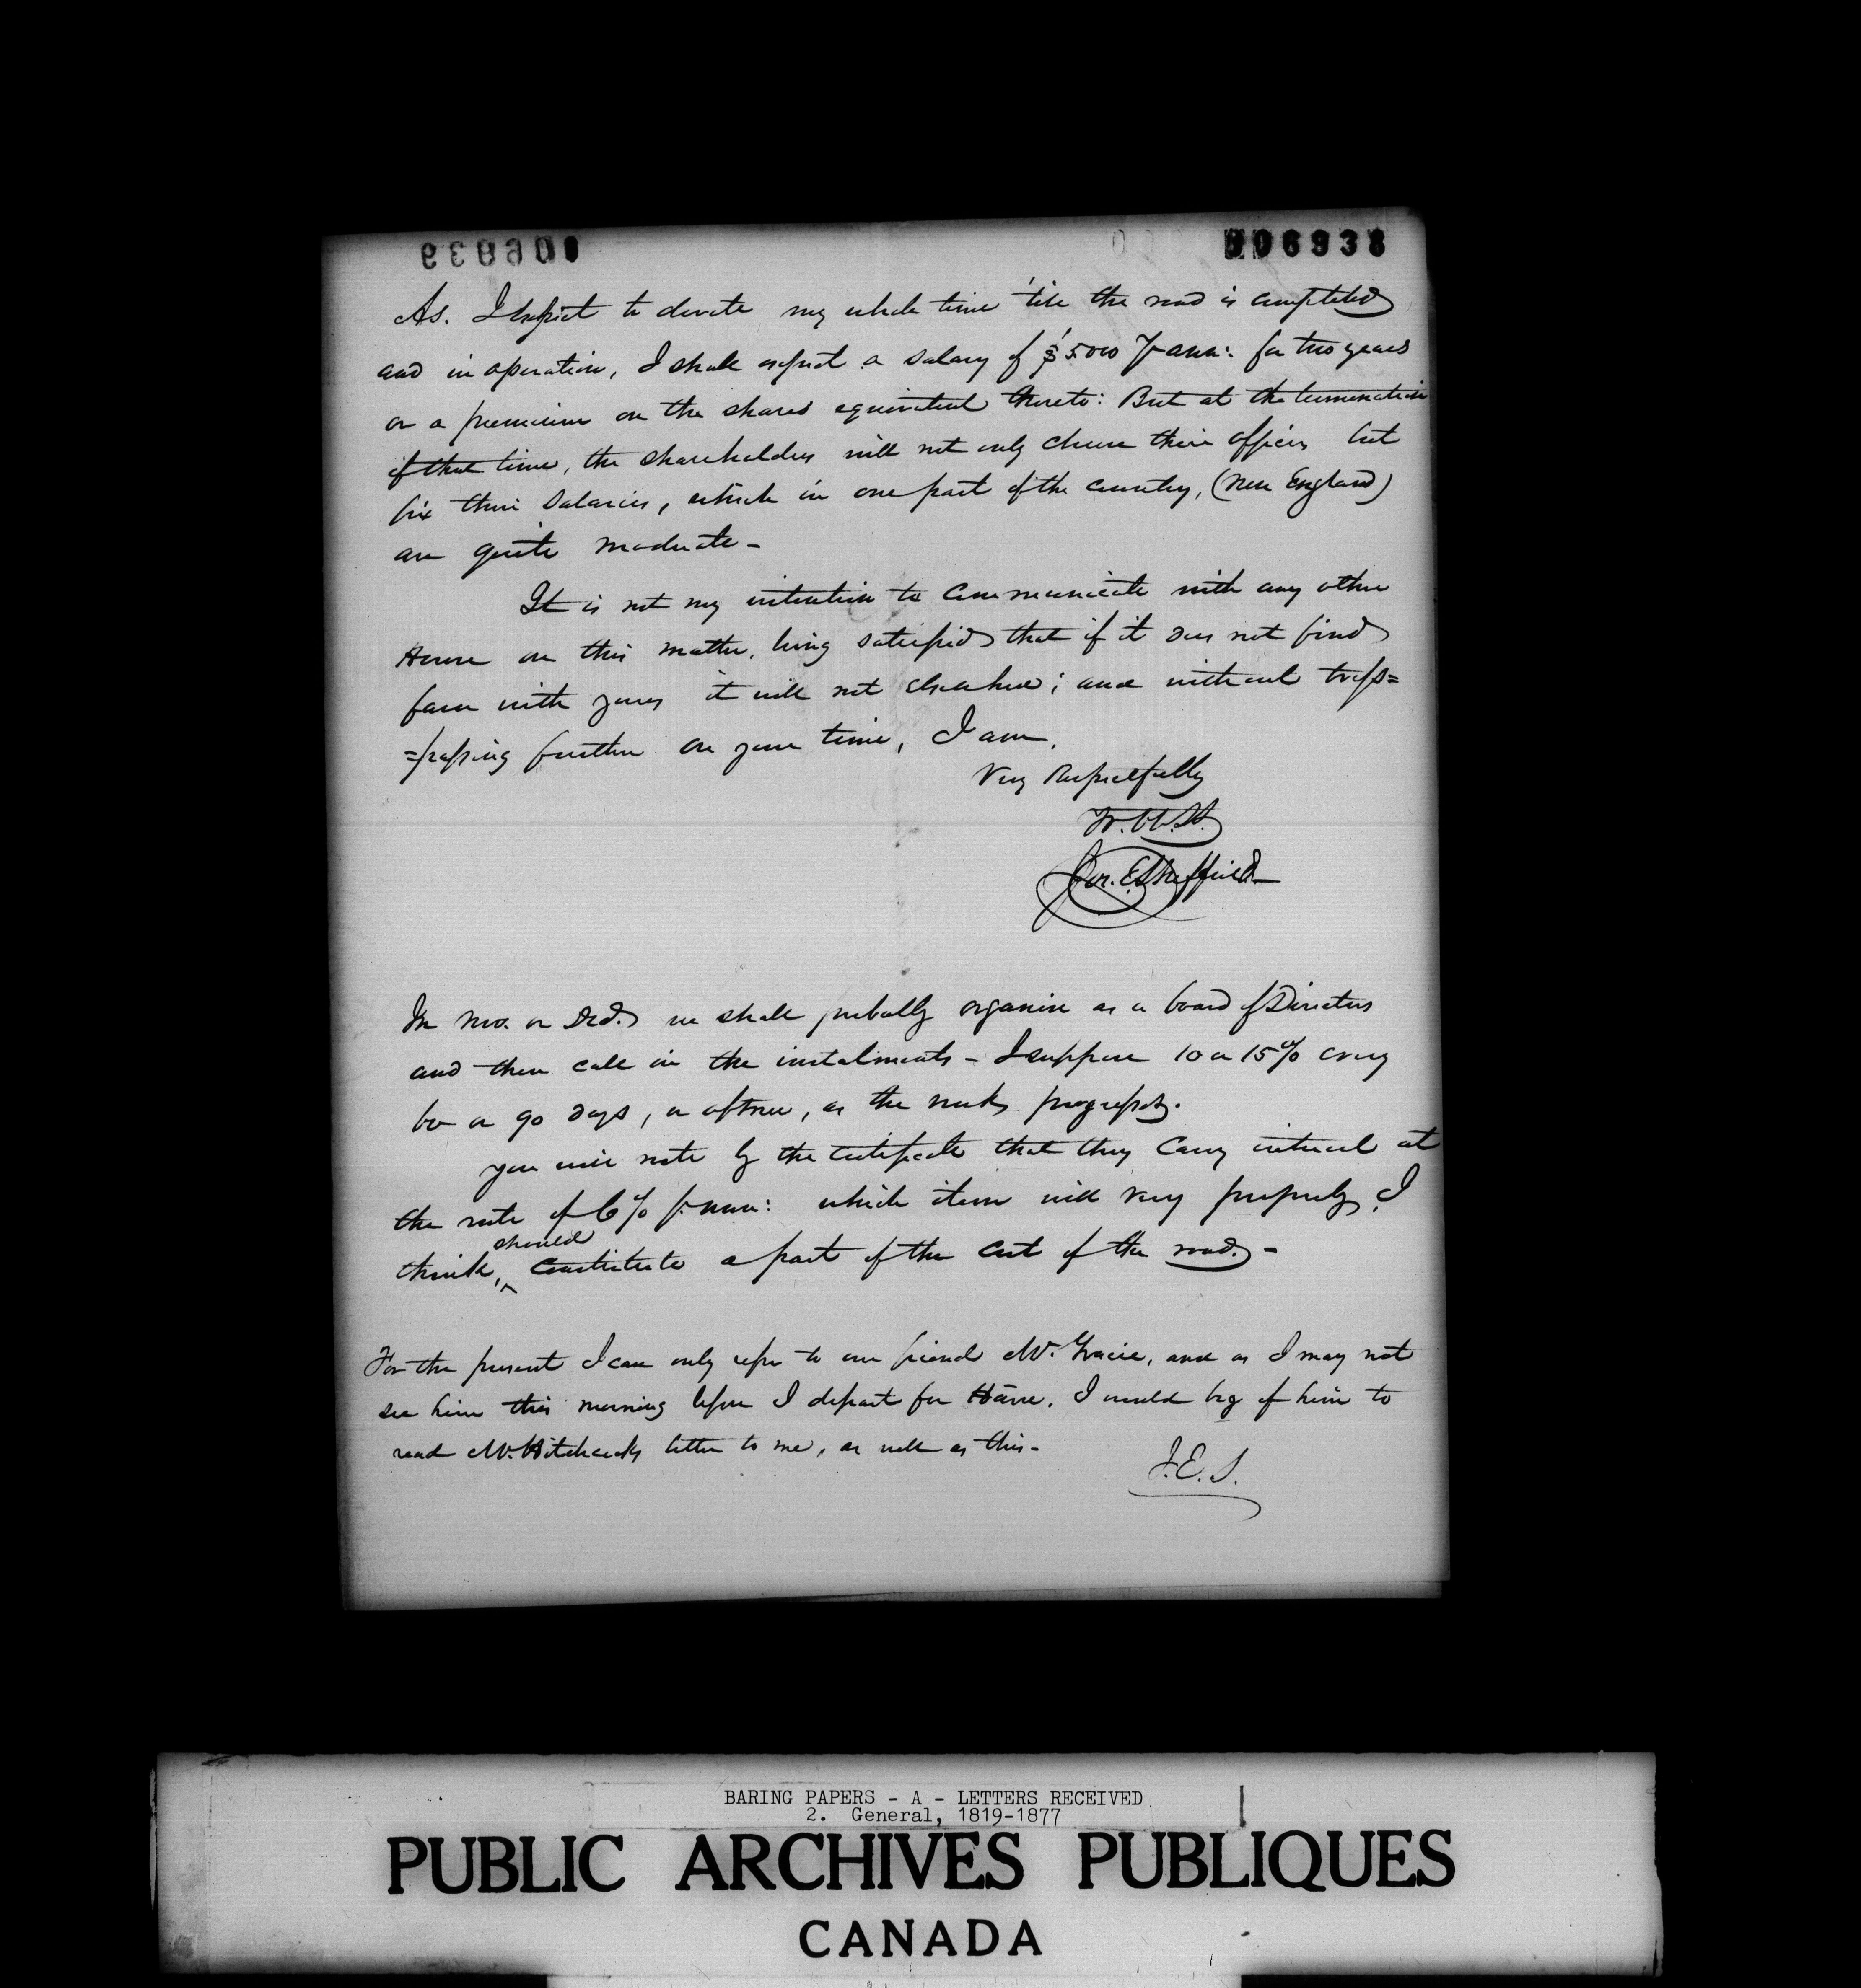 006938
As. I expect to devote my whole time 'till the road is completed
and in operation, I shall expect a salary of $5.000 p ann: for two years
or a premium on the shares equivalent thereto: But at the termination
of that time, the shareholders will not only chuse their officers but
fix their salaries, which in our part of the country, (New England)
are quite moderate -
It is not my intention to communicate with any other
House on this matter, being satisfied that if it does not find
favor with yours it will not elsewhere; and without tress=
=passing further on your time, I am,
Very Respectfully
Yr. Ob. St.
Jos. E. Sheffield
In Nov. or Decr. we shall probably organise as a board of Directors
and then call in the instalments - I suppose 10 or 15% every
60 or 90 days, or oftner, as the work progresses.
you will note by the certificate that they carry interest at
the rate of 6% p. ann: which item will very properly, I
think, should constitute a part of the cost of the road. -
For the present I can only refer to our friend Mr. Gracie, and as I may not
see him this morning before I depart for Havre, I would beg of him to
read Mr. Hitchcocks letter to me, as well as this -
J.E.S.
BARING PAPERS - A - LETTERS RECEIVED
2. General, 1819-1877
PUBLIC ARCHIVES PUBLIQUES
CANADA